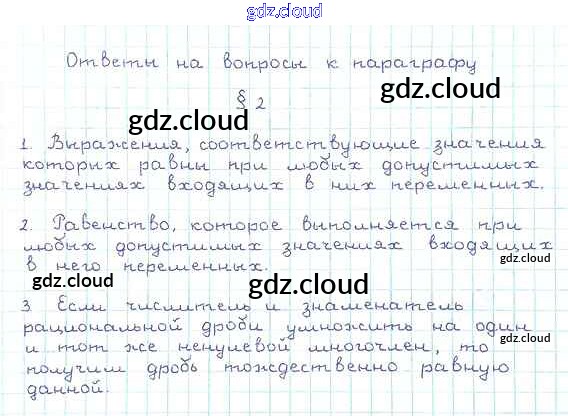 gdz.cloud
Ответы на вопросы к параграфу
gdz.cloud
gdz.cloud
§ 2
gdz.cloud
gdz.cloud
1. Выражения, соответствующие значения
которых равны при любых допустимых
значениях входящих в них переменных.
gdz.cloud
2. Равенство, которое выполняется при
любых допустимых значениях входящих
в него переменных.
gdz.cloud
gdz.cloud
3. Если числитель и знаменатель
рациональной дроби умножить на один
и тот же ненулевой многочлен, то
gdz.cloud
получим дробь тождественно равную
данной.
gdz.cloud